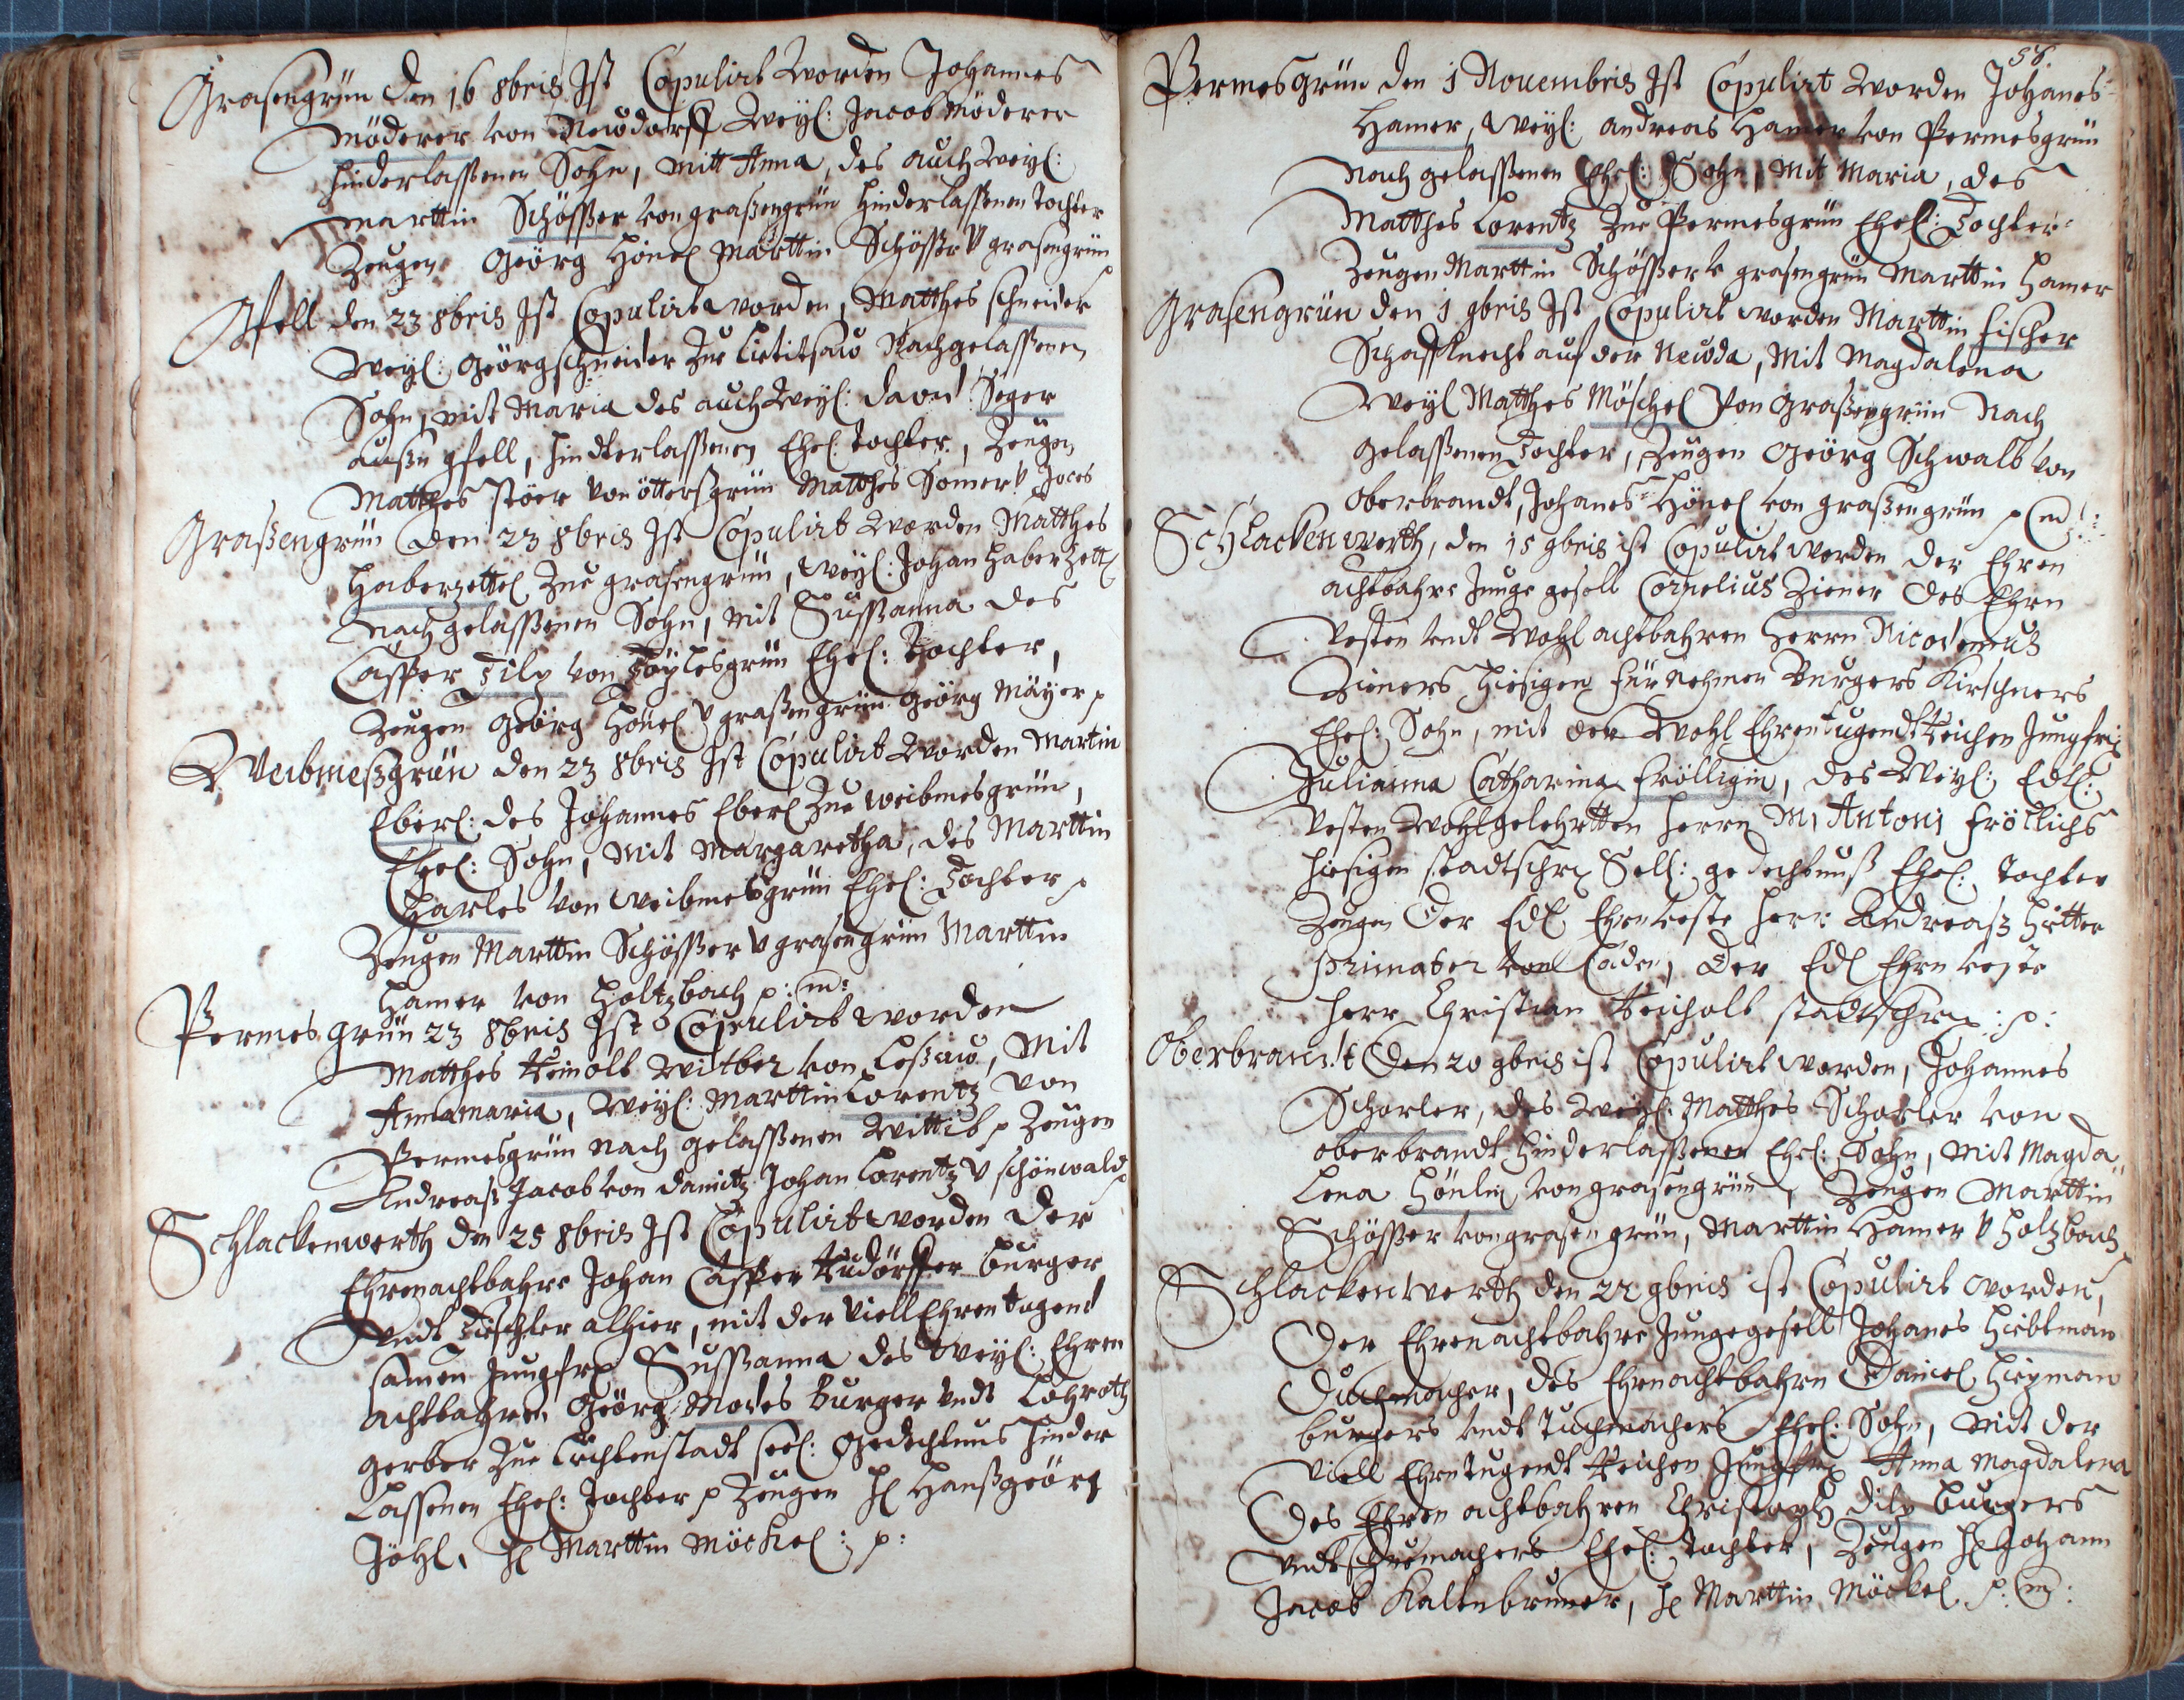 Grasengrün den 16 8bris Ist Copulirt Worden Johannes
Möderer von Newdorff Weyl: Jacob Möderer
hinderlassenen Sohn, mitt Anna, des auch Weyl:
Marttin Schösser von graßengrün hinderlassenen tochter
Zeugen Geörg Hönel Marttin Schösser V grasengrün
Gfell den 23 8bris Ist Copulirt worden, Matthes schneider
Weyl: Geörg schneider Zur Lietitsaw Nachgelassenen
Sohn, mit Maria des auch Weyl: david Seger
außn gfell, hindterlassenen Ehel: tochter, Zeugen
Matthes stöer von öttersgrün Matthes Somer V
Graßengrün den 23 8bris Ist Copulirt Worden Matthes
Haberzettel Zue grasengrün, Weyl: Johan Haberzettl
nachgelassenen Sohn, mit Sussanna des
Casper Tilp von Töÿlesgrün Ehel: tochter,
Zeugen Geörg Hönel V graßengrün Geörg Mäyer p
Weibmeßgrün den 23 8bris Ist Copulirt Worden Martin
Eberl: des Johannes Eberl Zue weibmesgrün,
Ehel: Sohn, Mit Margaretha, des Marttin
Harles von weibmesgrün Ehel: Tochter p
Zeugen Marttin Schösser V grasengrün Marttin
Hamer von Holtzbach p: m:
Permesgrün 23 8bris Ist Copulirt worden
Matthes Reinolt Witber von Leßaw, Mit
Annamaria, Weyl: Marttin Lorentz von
Permesgrün nach gelassenen Wittib p Zeugen
Andreaß Jacob von damitz Johan Lorentz V schönwald p
Schlackenwerth den 25 8bris Ist Copulirt worden der
Ehrenachtbahre Johan Casper Rudörffer burger
Vndt Tischler alhier, mit der Viell Ehren tugend
samen Jungfr: Sussanna des Weyl: Ehren
achtbahren Geörg Modes burger Vndt Lohroth
gerber Zue Lichtenstadt seel: gedechtnus hinder
Lassenen Ehel: Tochter p Zeugen H Hanßgeörg
Jöhl, H Marttin Möckel: p:
58.
Permesgrün den 1 Nouembris Ist Copulirt Worden Johanes
Hamer, Weyl: andreas Hamer von Permesgrün
Nach gelassenen Ehel: Sohn, Mit Maria, des
Matthes Lorentz Zue Permesgrün Ehel: Tochter
Zeugen Marttin Schösser v grasengrün Marttin Hamer
Grasengrün den 1 9bris Ist Copulirt worden Marttin Fischer
Schaffknecht auf der Newda, Mit Magdalena
Weyl Matthes Möschel Von Graßengrün Nach
gelassenen Tochter, Zeugen Geörg Schwalb von
oberbrandt, Johanes Hönel von graßengrün p m:
Schlackenwerth, den 15 9bris ist Copulirt worden der Ehren
achtbahre Junge gesell Cornelius Ziener des Ehrn
Vesten Vndt Wohl achtbahren Herrn Nicodemus
Zieners hiesigen Fürnehmen Burgers Kirschners
Ehel: Sohn, mit der Wohl Ehrentugendt Reichen Jungfr:
Julianna Catharina Frölligin, des Weyl: Edl:
Vesten Wohlgelehrtten Herrn M: Antoni Fröllichs
hiesigen stadtschr: Sell: gedechtnuß Ehel: tochter
Zeugen der Edl Ehrnveste Herr Andreas Hütter
primater von Caden, der Edl Ehrnveste
Herr Christian Reicholt stadtschr: p:
Oberbrandt den 20 9bris ist Copulirt worden, Johannes
Scharler, des Weyl: Matthes Scharler von
oberbrandt hinderlassenen Ehel: Sohn, Mit Magda
Lena Hönlin von grasengrün, Zeugen Marttin
Schösser von grasengrün, Marttin Hamer V Holzbach
Schlackenwerth den 22 9bris ist Copulirt worden,
der Ehrenachtbahre Junge gesell Johanes Hiebtman
Duchmacher, des Ehrnachtbahrn Daniel
burgers Vndt tuchmachers Ehel: Sohn, Mit der
Viell Ehrntugendt Reichen Jungfr: Anna Magdalena
des Ehren achtbahren Christoph dilp burgers
Vndt schumachers Ehel: tochter, Zeugen H Johann
Jacob Kaltnbruner, H Marttin Möckel p: m: